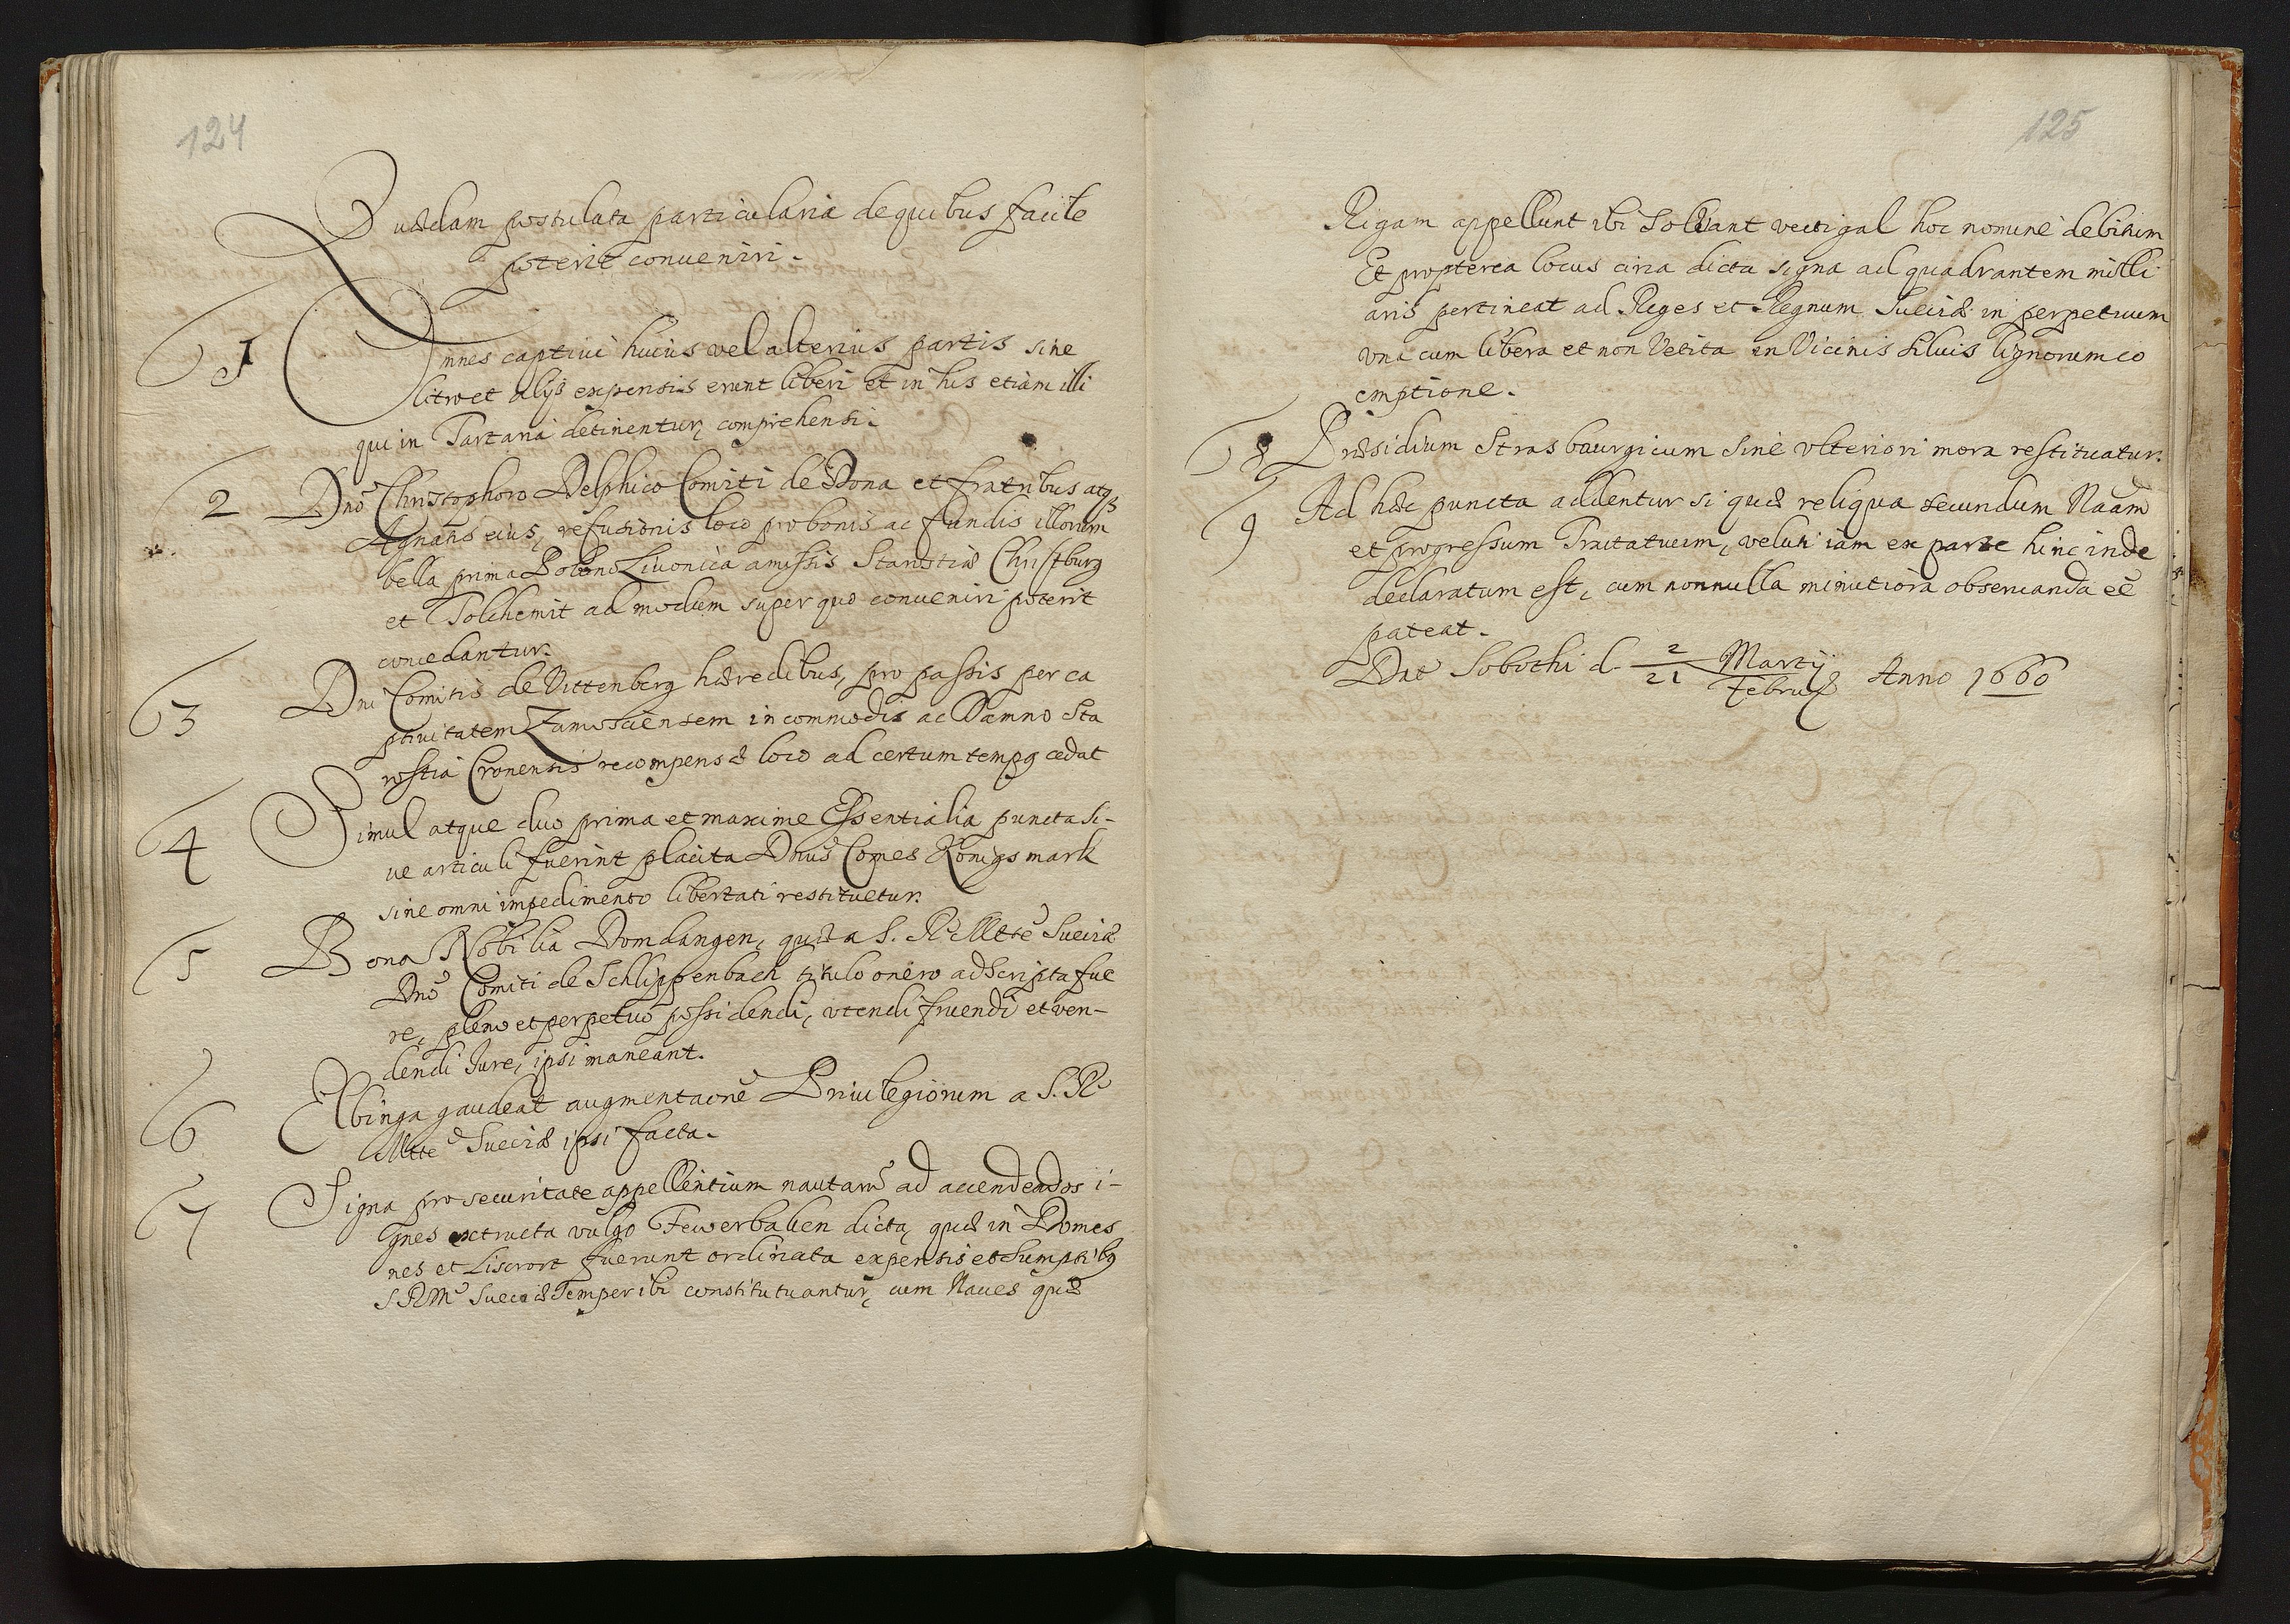 124
Quædam postulata particularia de quibus facile
poterit conueniri.
1 Omnes captiui huius vel alterius partis sine
litro et alijs expensis erunt liberi et in his etiam illi
qui in Tartaria detinentur, comprehensi.
2 Dno Christophoro Delphico Comiti de Dona et fratribus atq
Agnatis eius, refusionis loco pro bonis ac fundis illorum
bella prima Polono Liuonica amissis Starostiæ Christburg
et Tolchemit ad modum super quo conueniri poterit
concedantur.
3 Dni Comitis de Vittenberg hæredibus, pro passis per ca
ptiuitatem Zamosciensem incommodis ac Damno Sta
rostia Cronensis recompensæ loco ad certum tempq cedat
4 Simul atque duo prima et maxime Essentialia puncta si-
ue articuli fuerint placita Dnus Comes Königsmark
sine omni impedimento libertati restituetur.
5 Bona Nobilia Domdangen, quæ a S. R. Mtte Sueciæ
Dno Comiti de Schlippenbach titulo onero adscripta fue
re, pleno et perpetuo possidendi, vtendi fruendi et ven-
dendi Jure, ipsi maneant.
6 Elbinga gaudeat augmentaone Priuilegiorum a S. R
Mtte Sueciæ ipsi facta.
7 Signa pro securitate appellentium nautarū ad accendendos i-
gnes exctructa vulgo Fewerbaken dicta, quæ in Domes
nes et Liserort fuerunt ordinata expensis et Sumptibq
S R M Sueciæ Semper ibi constitutuantur, cum Naues quæ
125
Rigam appellunt ibi Soluant vectigal hoc nomine debitum
Et propterea locus circa dicta signa ad quadrantem milli
aris pertineat ad Reges et Regnum Sueciæ in perpetuum
vna cum libera et non Vetita in Vicinis Siluis lignorum co
emptione.
8 Præsidium Strasbuurgicum Sine vlteriori mora restituatur.
9 Ad hæc puncta addentur si quæ reliqua secundum Naam
et progressum Tractatuum, veluti iam ex parte hinc inde
declaratum est, cum nonnulla minutiora obseruanda eē
pateat.
Dat Sobothi d. 2/21 Martij/Februǎ Anno 1660